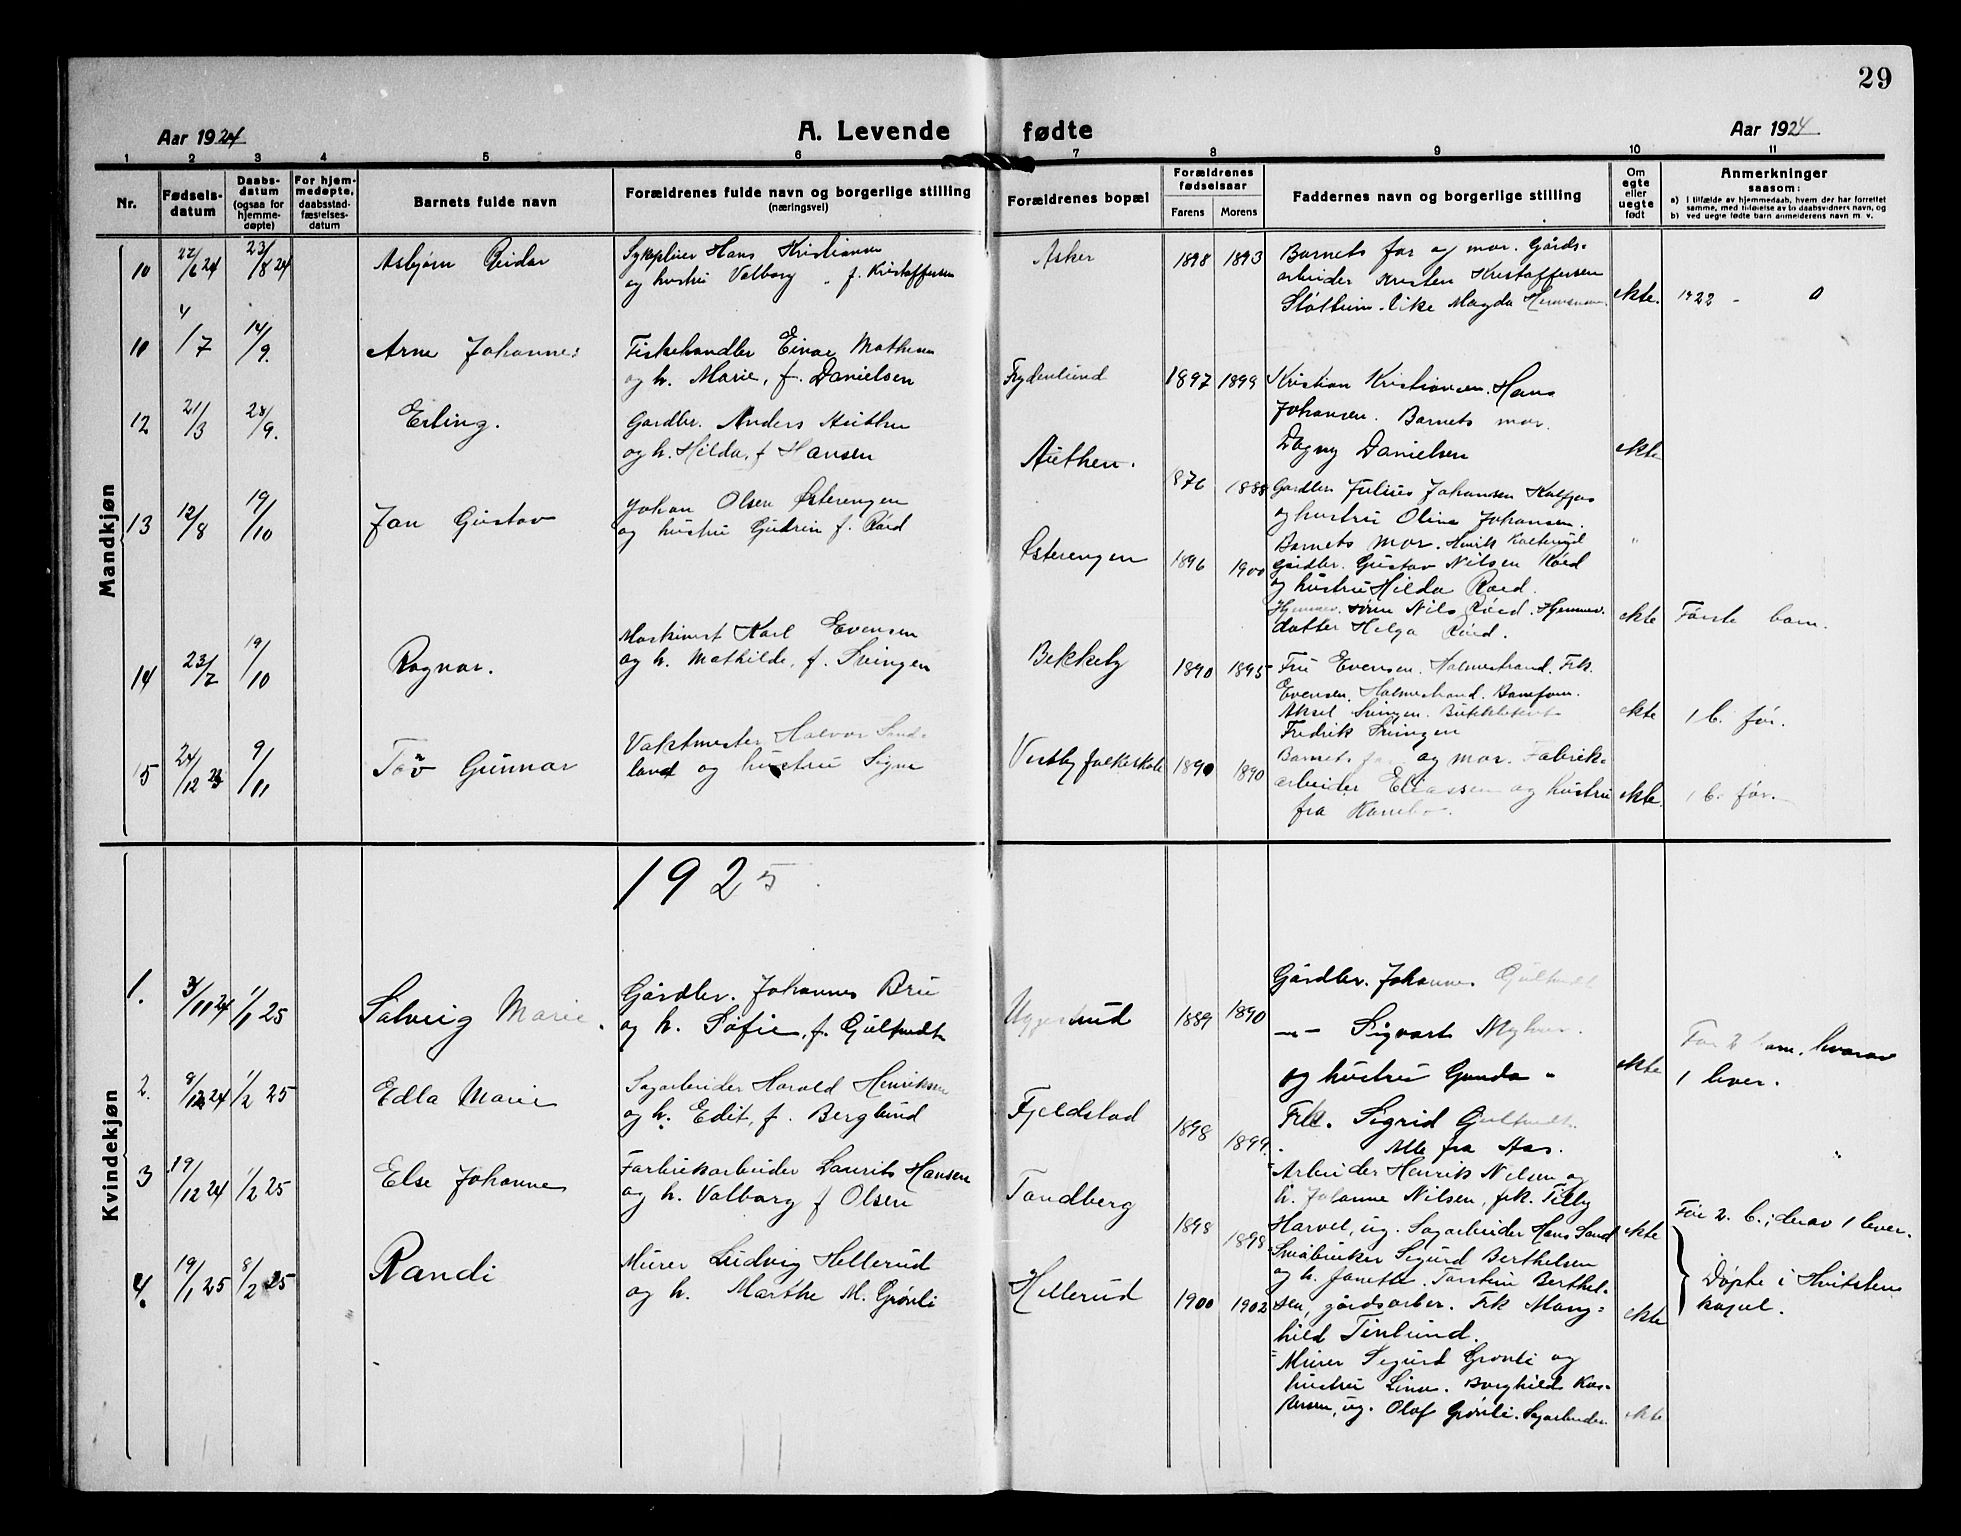 29
Aar 1924
A. Levende fødte
Aar 1924
1 2 3 4 5 6 7 8 9 10 11
Nr.
Fødsels-
datum
Daabs-
datum
(ogsaa for
hjemme-
døpte)
For hjem-
medøpte,
daabsstad-
fæstelses-
datum
Barnets fulde navn
Forældrenes fulde navn og borgerlige stilling
(næringsvei)
Forældrenes bopæl
Forældrenes
fødselsaar
Farens
Morens
Faddernes navn og borgerlige stilling
Om
egte
eller
uegte
født
Anmerkninger
saasom:
a) I tilfælde av hjemmedaab, hvem der har forrettet
samme, med tilføielse av to daabsvidners navn, og
b) ved uegte fødte barn anmelderens navn m. v.
Mandkjøn
10
22/6 24
23/8 24
Asbjørn Reidar
Hans Kristiansen
og hustru Valborg f. Kristoffersen
Asker
1898
1893
Barnets far og mor. Gårds-
arbeider Kristen Kristoffersen
like Magda
ekte.
1922 - 0
10
4/7
14/9.
Arne Johannes
Fiskehandler Einar Mathisen
og h. Marie, f. Danielsen
Frydenlund
1897
1899
Kristian Kristiansen. Hans
Johansen. Barnets mor.
Dagny Danielsen
ekte
12
21/3
28/9.
Erling.
Gardbr. Anders Authen
og h. Hilda, f Hansen
Authen.
876
1888
Gardbr. Julius Johansen
og hustru Oline Johansen.
Barnets mor. Henrik
"
13
12/8
19/10
Jan Gustav
Johan Olsen Østerengen
og hustru Gudrun f. Røed
Østerengen
1896
1900
gårdbr. Gustav Nilsen Røed
og hustru Hilda Røed.
Hjemmev. sønn Nils Røed. Hjemmev.
datter Helga Røed.
ekte
Første barn.
14
23/7
19/10
Ragnar.
Maskinist Karl Evensen
og h. Mathilde, f. Svingen
Bekkeby
1890
1895
Fru Evensen. Holmestrand. Frk.
Evensen. Holmestrand.
Aksel Svingen.
Fredrik Svingen
ekte
1 b. før.
15
24/12 23
9/11
Tov Gunnar
Vaktmester Halvor Sand-
land og hustru Signe
Vestby folkeskole
1890
1890
Barnets far og mor. Fabrik-
arbeider Eliassen og hustru
fra Kambo.
ekte.
1 b. før.
1925
Kvindekjøn
1.
3/11 24
1/1 25
Solveig Marie.
Gårdbr. Johannes Bru
og h. Sofie, f. Gultvedt
Uggerud
1889
1890
Gårdbr. Johannes Gultvedt
-"- Sigvart Myhrer.
og hustru Gunda "
Frk. Sigrid Gultvedt.
Alle fra Aas.
ekte
Før 2 barn, hvorav
1 lever.
2.
9/12 24
1/2 25
Edla Marie
Sagarbeider Harald Henriksen
og h. Edit, f. Berglund
Fjeldstad
1898
1899.
Arbeider Henrik Nilsen og
h. Johanne Nilsen, frk. Tilly
Harvel, ug. Sagarbeider Hans Sand
ekte
"
3
19/12 24
1/2 25
Else Johanne
Farbrikarbeider Laurits Hansen
og h. Valborg f Olsen
Tandberg
1898
1898
Småbruker Sigurd Berthelsen
og h. Janette. Torstein Berthel-
sen, gårdsarber. Frk Mang-
hild Tinlund.
ekte
Før 2. b., derav 1 lever.
4.
19/1 25
8/2 25
Randi
Murer Ludvig Hellerud
og h. Marthe M. Grønli
Hellerud
1900
1902
Murer Sigurd Grønli og
hustru Lina. Borghild
ug. Olaf Grønli. Sagarbeider
ekte
Døpte i Hvitsten
kapel.